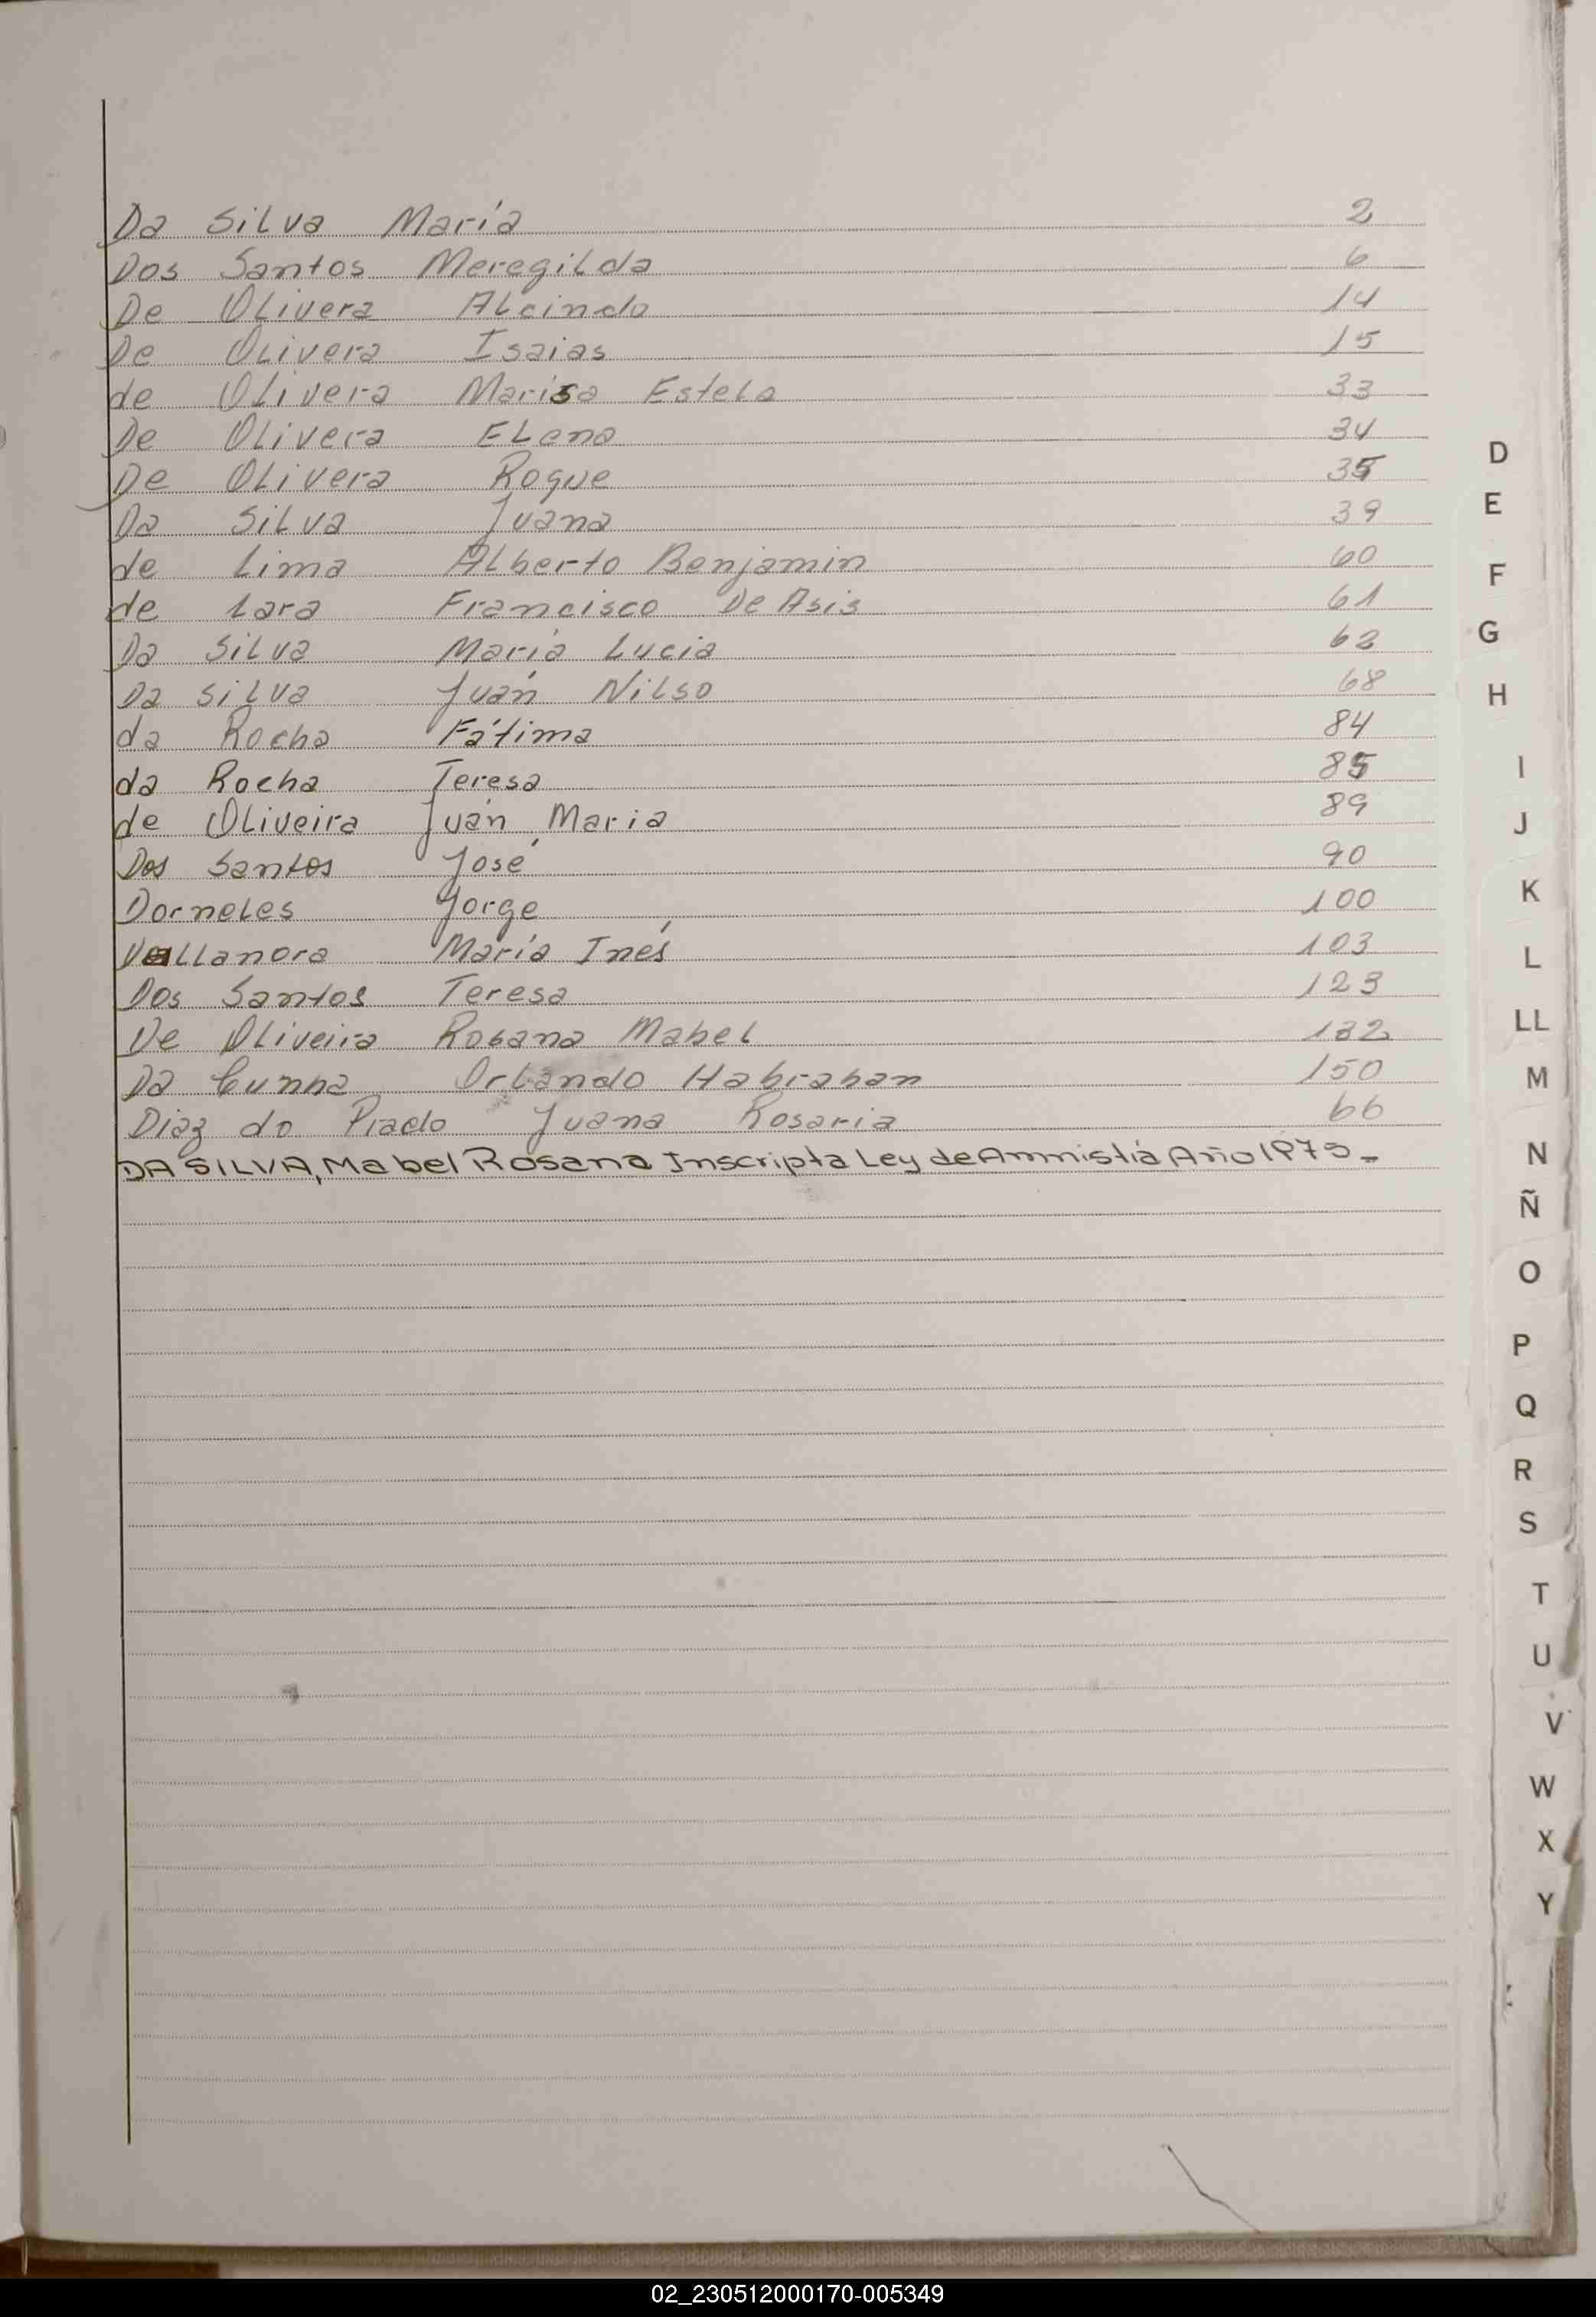 Da Silva María 2
Dos Santos Meregilda 6
De Olivera Alcindo 14
De Olivera Isaias 15
de Olivera Marisa Estela 33
De Olivera Elena 34
De Olivera Roque 35
Da Silva Juana 39
de Lima Alberto Benjamin 60
de Lara Francisco De Asis 61
Da Silva María Lucia 63
Da Silva Juan Nilso 68
da Rocha Fátima 84
da Rocha Teresa 85
de Oliveira Juán Maria 89
Dos Santos José 90
Dorneles Jorge 100
María Inés 103
Dos Santos Teresa 123
De Oliveira Rosana Mabel 132
Da Cunha Orlando Habrahan 150
Diaz do Prado Juana Rosaria 66
DA SILVA, Mabel Rosana Inscripta Ley de Amnistía Año 1975-
D
E
F
G
H
I
J
K
L
LL
M
N
Ñ
O
P
Q
R
S
T
U
V
W
X
Y
02_230512000170-005349